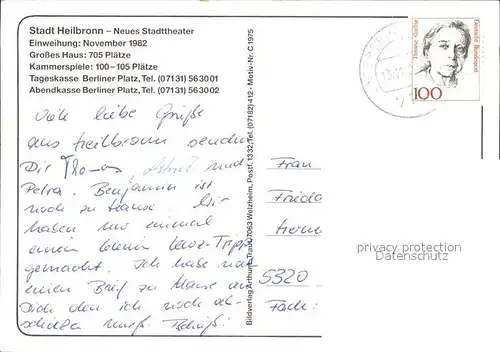 Stadt Heilbronn – Neues Stadttheater
Einweihung: November 1982
Großes Haus: 705 Plätze
Kammerspiele: 100–105 Plätze
Tageskasse Berliner Platz, Tel. (07131) 563001
Abendkasse Berliner Platz, Tel. (07131) 563002
Viele liebe Grüße
aus Heilbronn senden
Dir Thomas, Astrid und
Petra. Benjamin ist
noch zu Hause. Wir
haben nur einmal
einen kleinen Kurz-Trip
gemacht. Ich habe noch
einen Brief zu Hause an
Dich den ich noch ab-
schicken muß. Tschüß!
Bildverlag Arthur Traub, 7063 Welzheim, Postf. 1332, Tel. (07182) 412 - Motiv-Nr. C 1975
Therese Giehse
Deutsche Bundespost
100
Frau
Frieda
5320
Fach:
privacy protection
Datenschutz